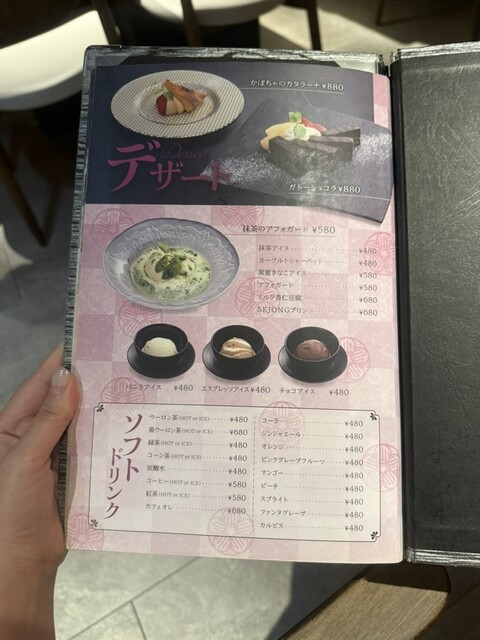 かぼちゃのカタラーナ ¥880
Dessert
デザート
ガトーショコラ ¥880
抹茶のアフォガード ¥580
抹茶アイス ¥480
ヨーグルトシャーベット ¥480
黒蜜きなこアイス ¥580
アフォガード ¥580
ミルク杏仁豆腐 ¥680
SEJONGプリン ¥680
バニラアイス ¥480
エスプレッソアイス ¥480
チョコアイス ¥480
ソフトドリンク
ウーロン茶(HOT or ICE) ¥480
黒ウーロン茶(HOT or ICE) ¥680
緑茶(HOT or ICE) ¥480
コーン茶(HOT or ICE) ¥480
炭酸水 ¥480
コーヒー(HOT or ICE) ¥580
紅茶(HOT or ICE) ¥580
カフェオレ ¥680
コーラ ¥480
ジンジャエール ¥480
オレンジ ¥480
ピンクグレープフルーツ ¥480
マンゴー ¥480
ピーチ ¥480
スプライト ¥480
ファンタグレープ ¥480
カルピス ¥480